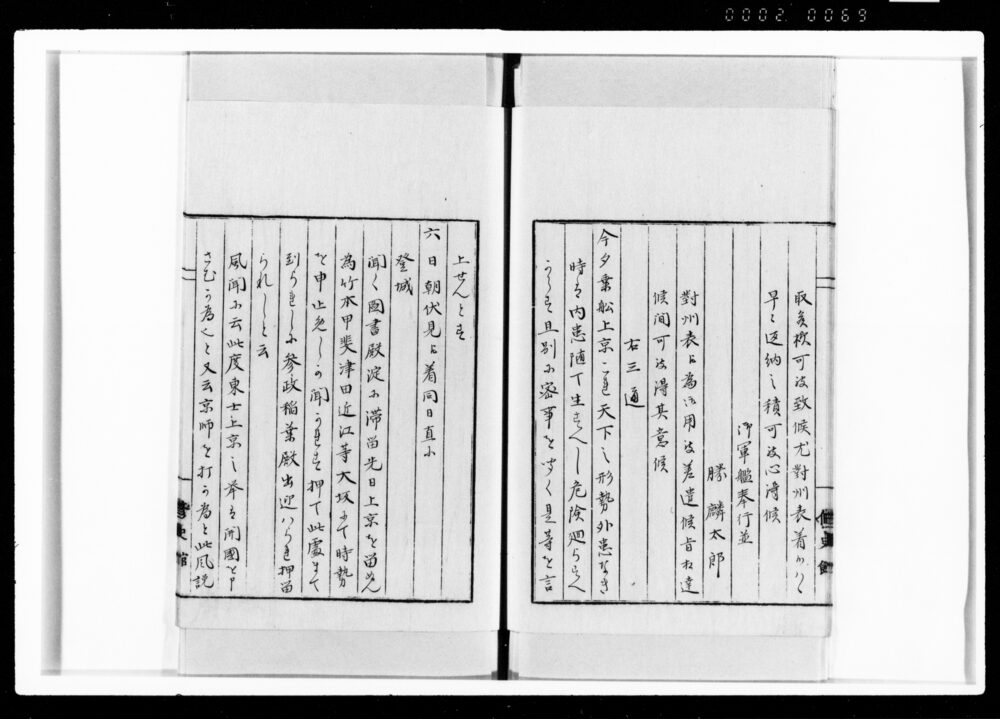 0002 0069
取矣様可被致候尤對州表着
早々返納之積可被心得候
御軍艦奉行並
勝麟太郎
對州表江為御用被差遣候旨相達
候間可被得其意候
右三通
今夕乗船上京一天下之形勢外患なき
時は内患随て生すへし危険廻らすへ
からす且別ニ密事を聞く是等を言
上せんとす
六日朝伏見江着同日直ニ
登城
聞く図書殿淀ニ滞留先日上京を留めん
為竹本甲斐津田近江等大坂にて時勢
を申止免しか聞かれす押て此處まて
到られしに参政稲葉殿出迎ハられ押留
られしと云
風聞ニ云此度東士上京之挙は開国を申
さむか為也と又云京師を打か為と此風説